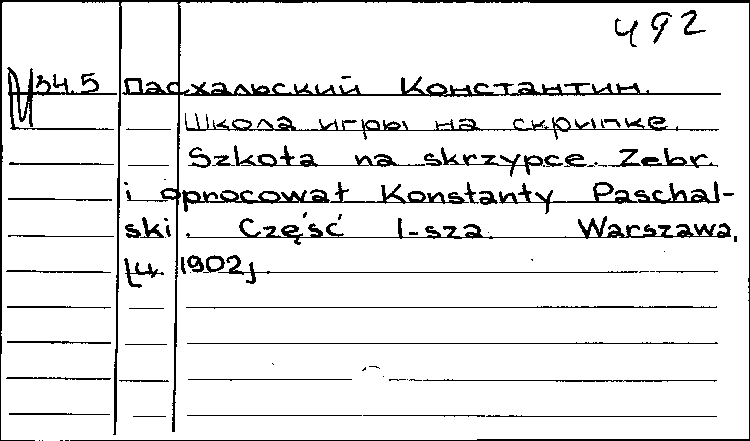 492
34.5 Пасхальский Константин.
Школа игры на скрипке.
Szkoła na skrzypce. Zebr.
i oprocował Konstanty Paschal-
ski. Część I-sza. Warszawa,
[ц. 1902].